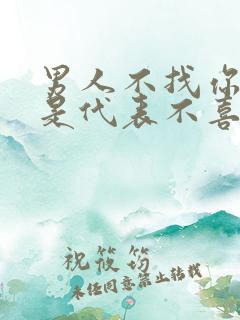 男人不找你
是代表不喜
祝筱筠
未经同意禁止转载